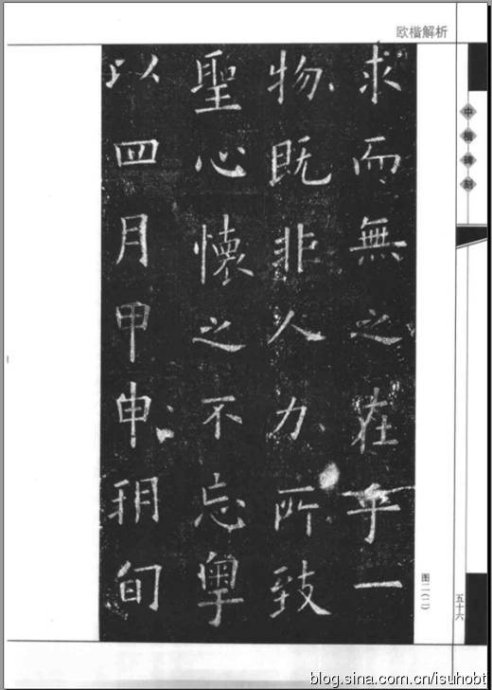 欧楷解析
求而無之在乎一
物既非人力所致
聖心懷之不忘粤
以四月甲申朔旬
图二(二)
五十六
blog.sina.com.cn/isuhobt